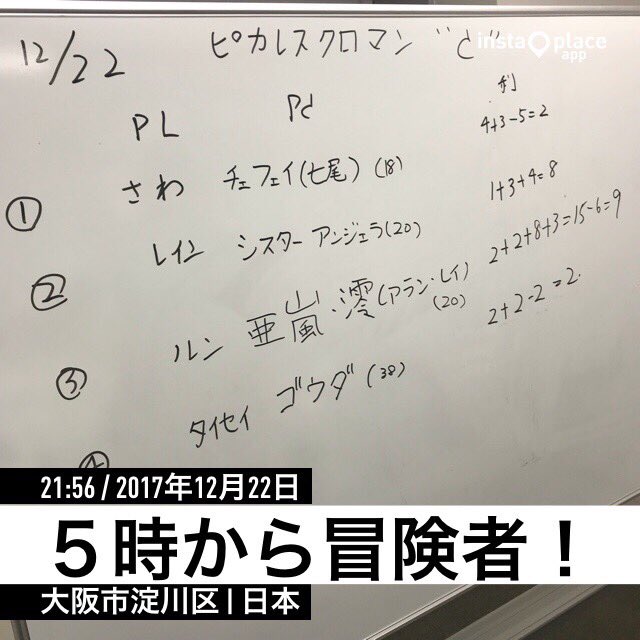 12/22 ピカレスクロマン "ど"
insta place app
PL PC 利
① さわ チェフェイ(七尾) (18) 4+3-5=2
② レイン シスター アンジェラ(20) 1+3+4=8
③ ルン 亜嵐・澪(アラン・レイ) (20) 2+2+8+3=15-6=9
タイセイ ゴウダ (38) 2+2-2=2
21:56 / 2017年12月22日
５時から冒険者！
大阪市淀川区 | 日本